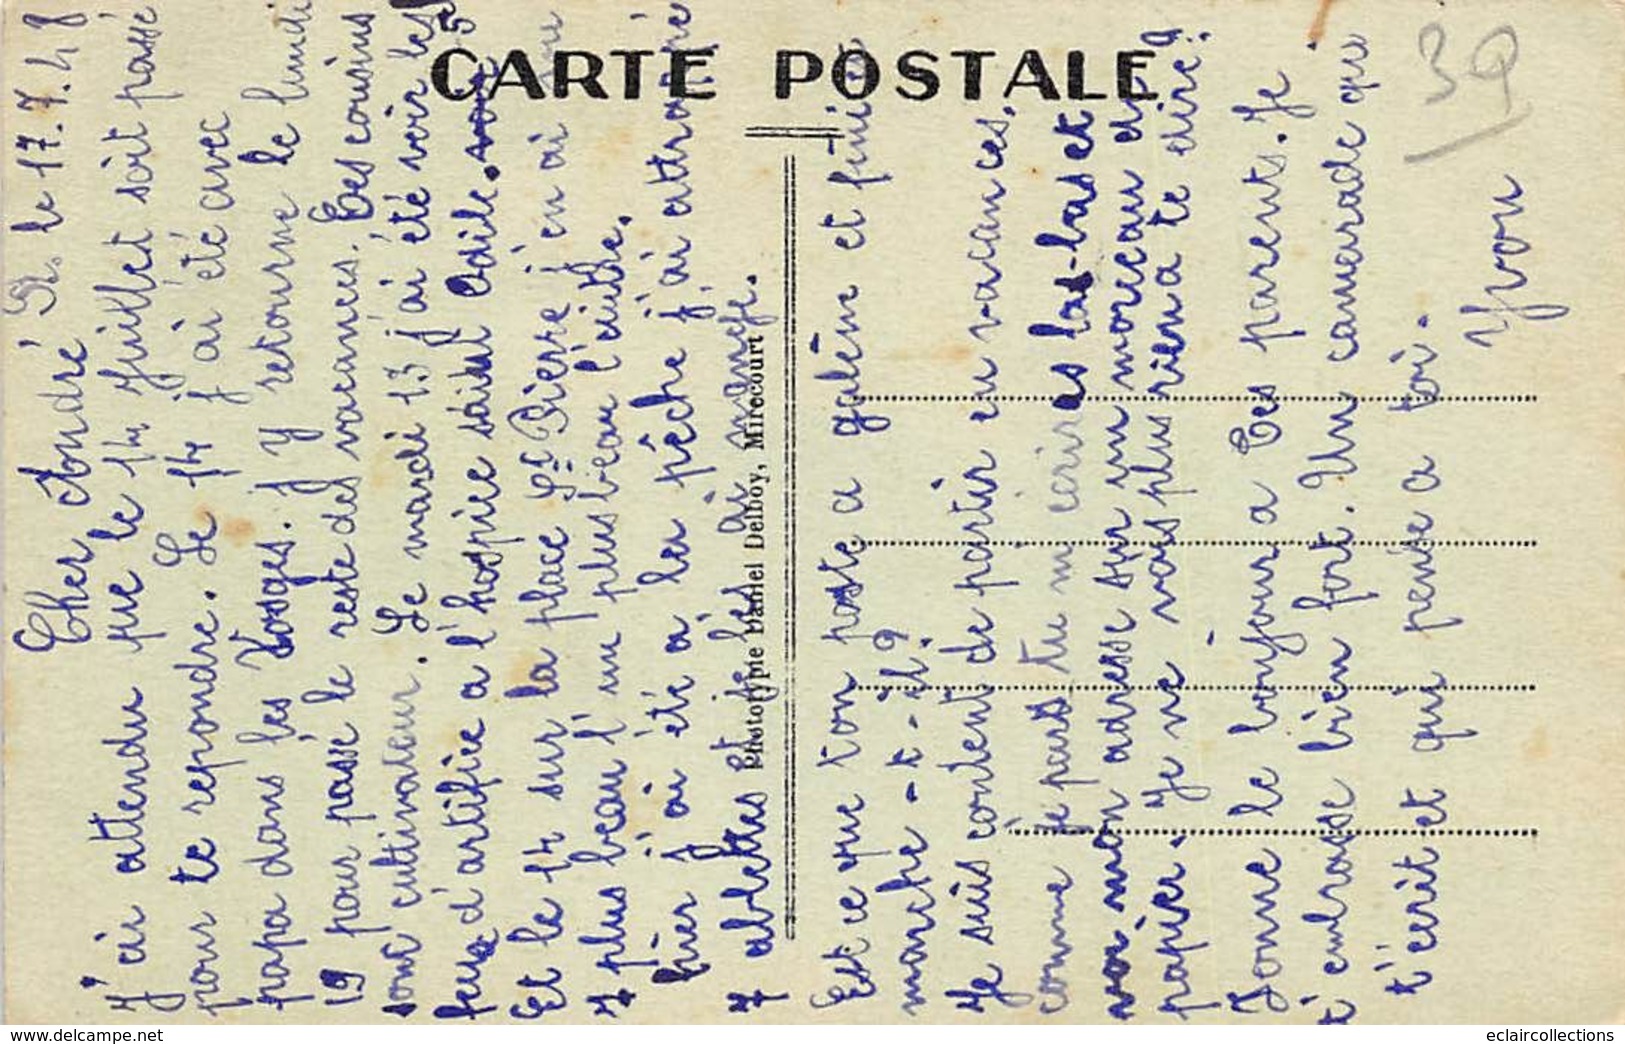 CARTE POSTALE
39
R. le 17.7.48
Cher André
J'ai attendu que le 14 Juillet soit passé
pour te repondre. Le 14 j'ai été avec
papa dans les Vosges. J y retourne le lundi
19 pour passé le reste des vacances. Ces cousins
sont cultivateur. Le mardi 13 j'ai été voir les
feux d'artifice a l'hospice saint Odile.
Et le 14 sur la place St Pierre j'en ai vu 5
7 plus beau l'un plus beau l'autre.
hier j'ai été a la pêche j'ai attrapé
7 ablettes et je les ai mangé.
Phototypie Daniel Delboy, Mirecourt
Est ce que ton poste a galène et fini et
marche-t-il?
Je suis content de partir en vacances,
comme je pars tu m'écriras las-bas et
mon adresse sur un morceau de
papier. Je ne vois plus rien a te dire.
Donne le bonjour a Tes parents. Je
t'embrasse bien fort. Un camarade qui
t'ecrit et qui pense a toi.
Yvon
www.delcampe.net
eclaircollections